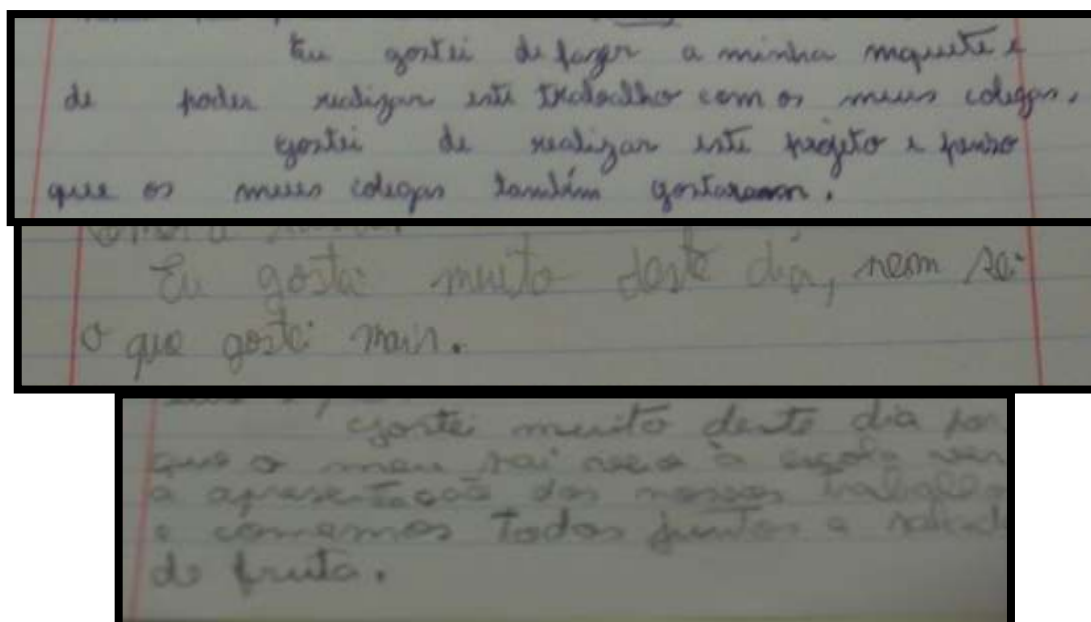 Eu gostei de fazer a minha mquete e
de poder realizar este trabalho com os meus colegas.
gostei de realizar este projeto e penso
que os meus colegas também gostaramm.
Eu gostei muito deste dia, nem sei
o que gostei mais.
Gostei muito deste dia por
que o meu pai veio à escola ver
a apresentação dos nossos
e comemos todos juntos a salada
de fruta.